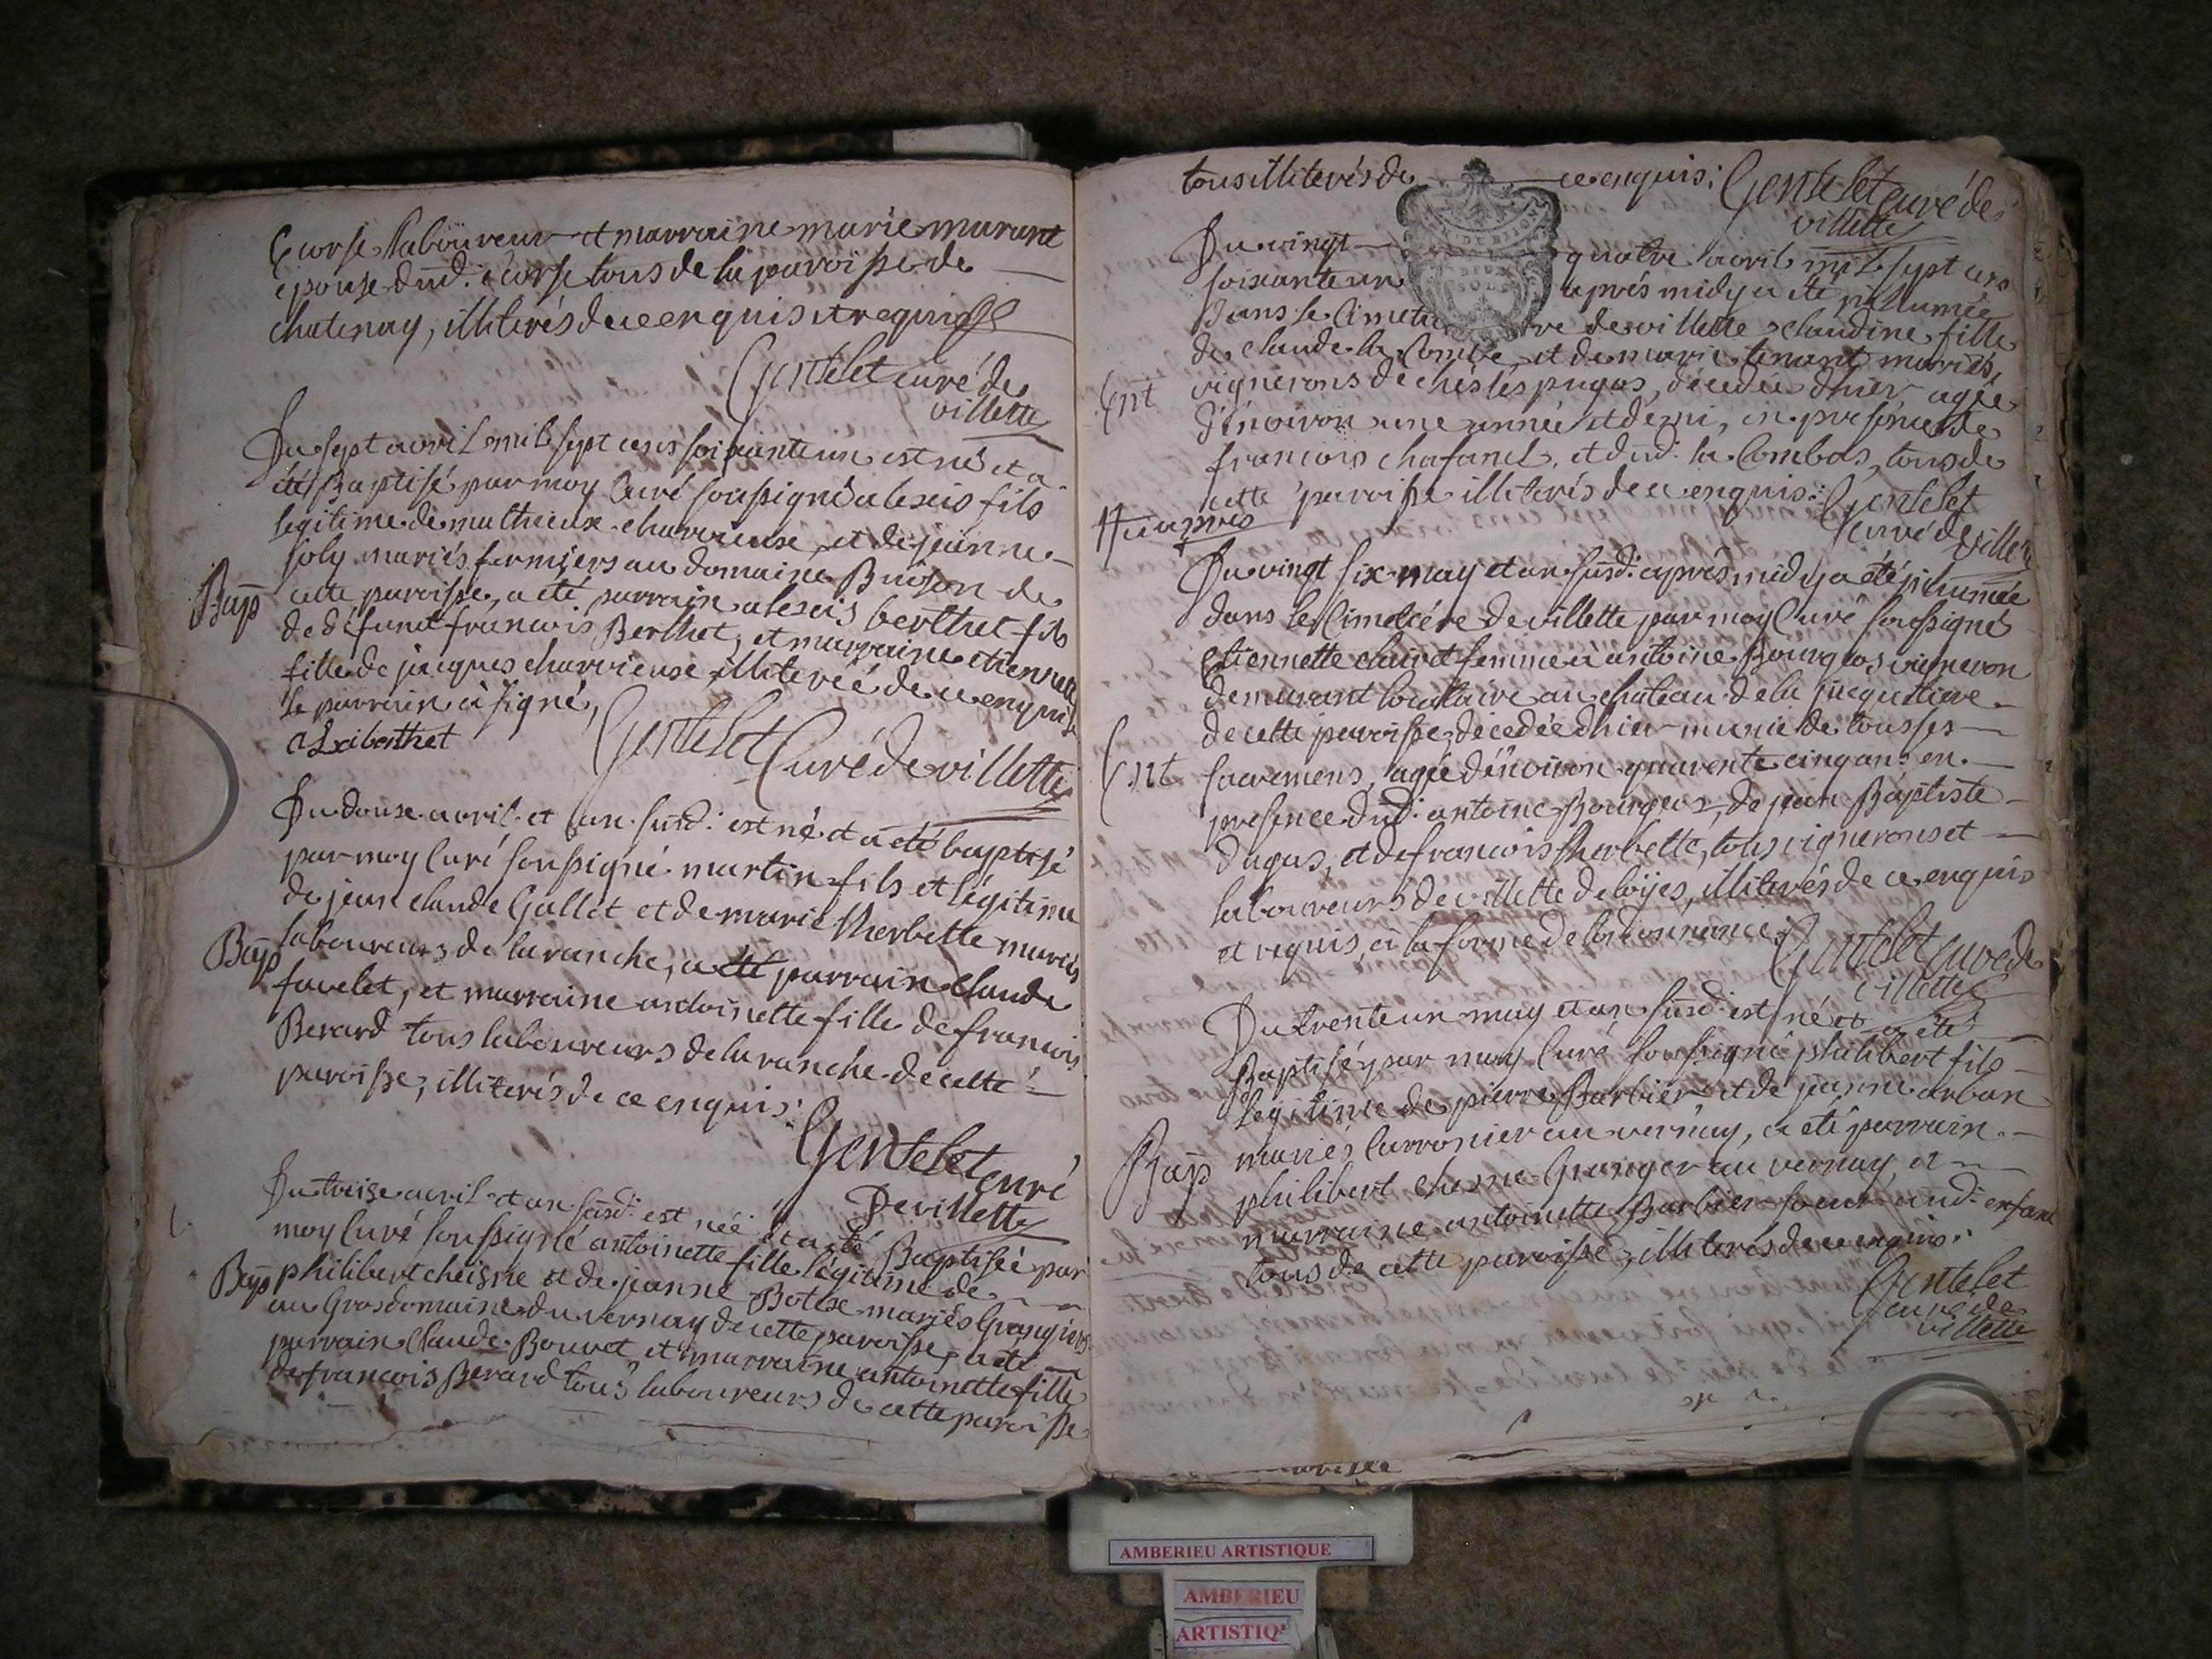 Ecorse laboureur et marraine marie murant
epouse dud. Ecorse tous de la paroisse de
chatenay, illiterés de ce enquis et requis
Gentelet curé de
villette
Du sept avril mil sept cens soixante un est né et a
été Baptisé par moy Curé soussigné alexis fils
legitime de mathieux charvieuse et de jeanne
joly mariés fermiers au domaine Buison de
Bap cette paroisse, a été parrain alexis berthet fils
de défunt francois Berthet, et marraine etiennette
fille de jacques charvieuse illiterée de ce enquise
le parrain a signé,
alexi berthet
Gentelet Curé de villette
Du douse avril et an susd: est né et a été baptisé
par moy Curé soussigné martin fils et légitime
de jean claude Gallet et de marie therbette mariés
Bap laboureurs de laranche, a été parrain Claude
favelet, et marraine antoinette fille de francois
Berard tous laboureurs de laranche de cette
paroisse, illiterés de ce enquis:
Gentelet curé
De villette
Du treise avril et an susd: est née et a été Baptisée par
moy Curé soussigné antoinette fille légitime de
Bap philibert cheisne et de jeanne Botex mariés Grangiers
au Gros domaine du vernay de cette paroisse, a été
parrain Claude Bouvet et marraine antoinette fille
de francois Berard tous laboureurs de cette paroisse
tous illiterés de ce enquis: Gentelet curé de
villette
Du vingt quatre avril mil sept cens
soixante un après midy a été inhumée
Dans le Cimetiere de villette claudine fille
de claude la Combe et de marie tenant mariés,
Ent vignerons de chés les pugas, décedée d'hier agée
d'énviron une année et demi, en presence de
francois chafanel, et dud: la Combas, tous de
cette paroisse illiterés de ce enquis: Gentelet
curé de villette
Du vingt six may et an susd: après midy a été inhumée
dans le Cimetiére de villette par moy Curé soussigné
Etiennette clairet femme à antoine Bourgeos vigneron
demeurant locataire au chateau de la jacquetiere
de cette paroisse, décedée d'hier munie de tous ses
Ent sacremens, agée d'énviron quarente cinq ans en
presence dud: antoine Bourgeos, de jean Baptiste
dugas, et de francois therbette, tous vignerons et
laboureurs de villette de loÿes, illiterés de ce enquis
et requis, à la forme de lordonnance. Gentelet curé de
villette
Du trente un may et an susd: est né et a été
Baptisé par moy Curé soussigné philibert fils
légitime de pierre Barbier et de jeanne arban
Bap mariés Carronier au vernay, a été parrain
philibert chesne Granger au vernay, et
marraine antoinette Barbier soeur aud: enfant
tous de cette paroisse, illiterés de ce enquis:
Gentelet
curé de
villette
AMBERIEU ARTISTIQUE
AMBERIEU
ARTISTIQ